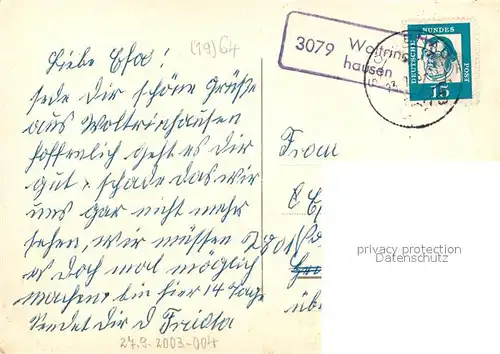 (19)64
3079 Woltring-
hausen
DEUTSCHE
BUNDES
POST
15
Liebe Elsa!
sede Dir schöne Grüße
aus Woltrinhausen
hoffenlich geht es dir
gut, schade das wir
uns gar nicht mehr
sehen, wir müssen
es doch mal möglich
machen, bin hier 14 Tage
Sendet dir d Frieda
From
2901
übe
privacy protection
Datenschutz
27.9.2003-004